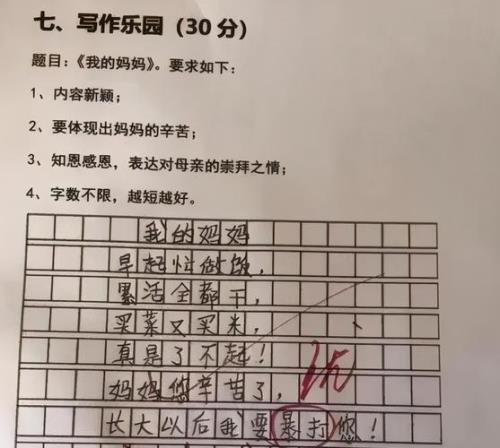 七、写作乐园（30分）
题目：《我的妈妈》。要求如下：
1、内容新颖；
2、要体现出妈妈的辛苦；
3、知恩感恩，表达对母亲的崇拜之情；
4、字数不限，越短越好。
我的妈妈
早起忙做饭，
累活全都干，
买菜又买米，
真是了不起！
妈妈您辛苦了，
长大以后我要暴打您！